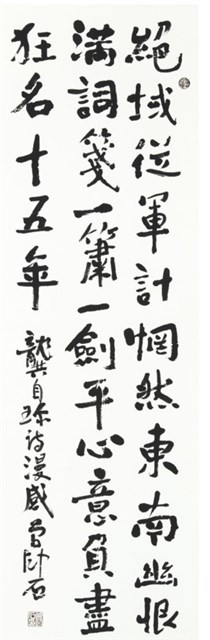 絕域從軍計惘然東南幽恨
滿詞箋一簫一劍平心意負盡
狂名十五年
龔自珍詩漫感 曾卧石